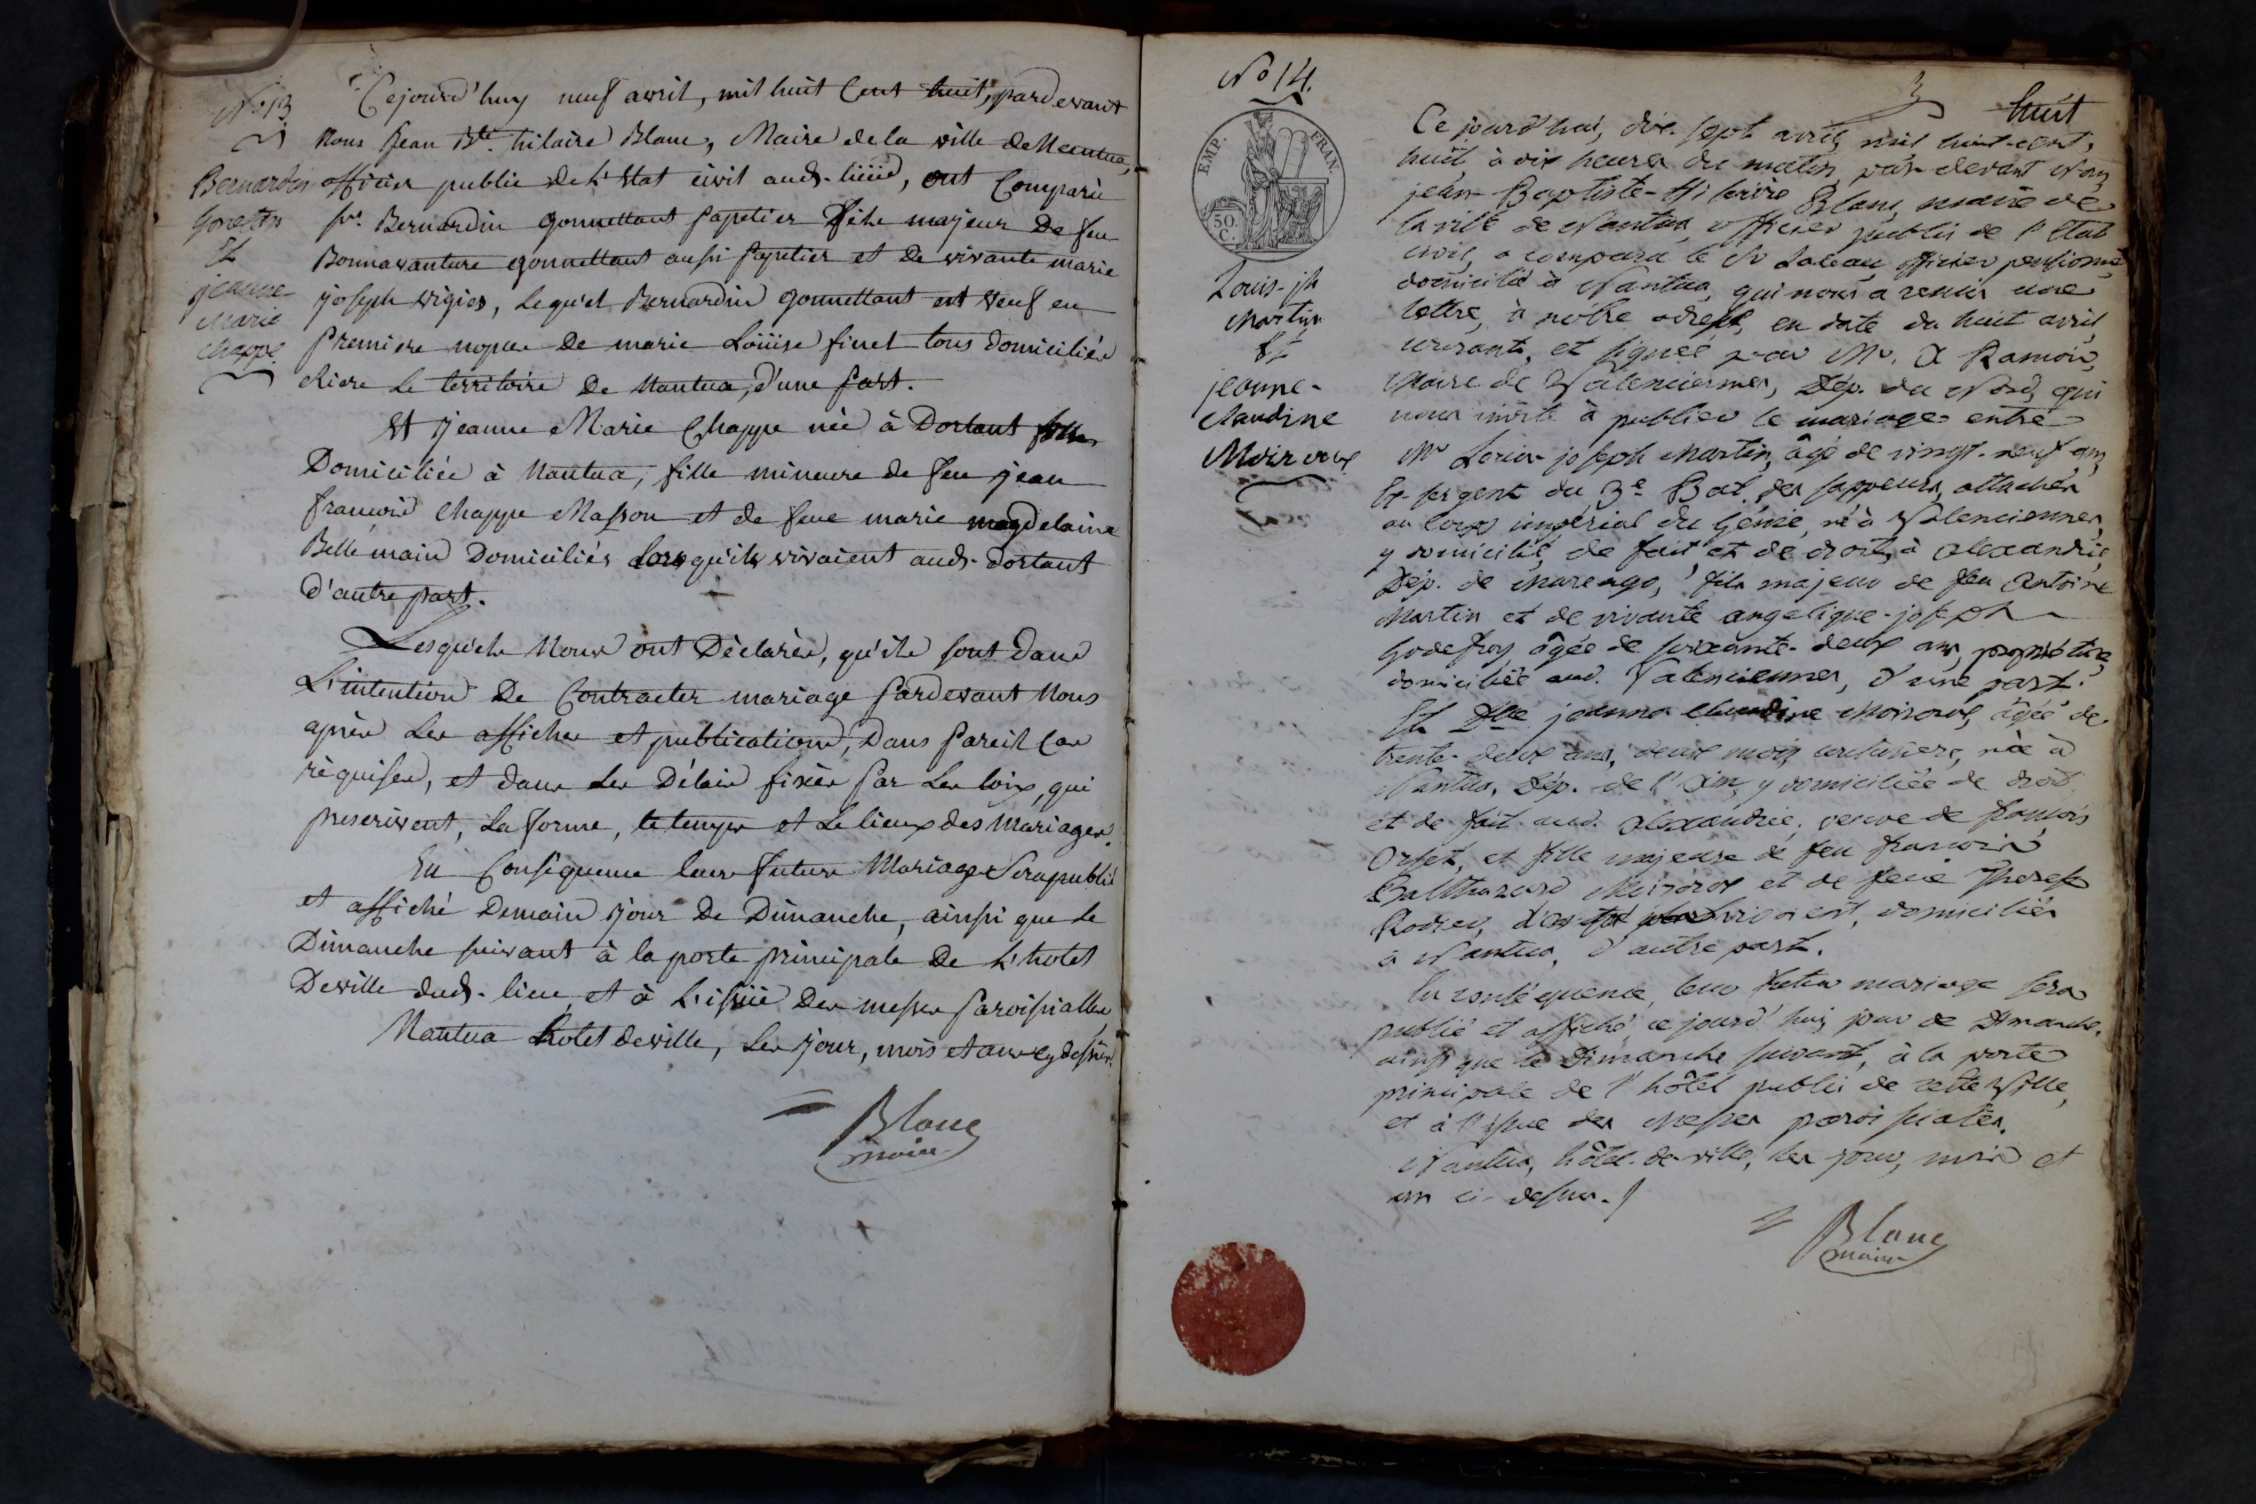 N.° 13
Bernardin
Gonettan
Et
jeanne-
Marie
Chappe
Cejourd'huy neuf avril, mil huit Cent huit, pardevant
Nous Jean B.te hilaire Blanc, Maire de la ville de Nantua,
officier public de L'Etat civil aud. lieüe, ont Comparù
s.r Bernardin gonnettant papetier fils majeur De feu
Bonnavanture gonnettant aussi papetier et De vivante marie
joseph vigier, Lequ'el Bernardin gonnettant est veuf en
premiere nopce De marie Loüise finet tous domiciliés
riere Le territoire De Nantua, d'une part.
Et jeanne Marie Chappe née à Dortant
Domiciliée à Nantua, fille mineure de feu jean
francois Chappe Masson et de feue marie magdelaine
Bellemain Domiciliés lorsqu'ils vivaient aud. dortant
D'autre part.
Lesquels Nous ont Déclarés, qu'ils sont dans
L'intention De Contracter mariage pardevant Nous
après Les affiches et publications, Dans pareil Cas
réquises, et dans Les Délais fixés par Les loix, qui
prescrivent, La forme, le temps et Le lieux des Mariages.
En Conséquence leur futur Mariage Sera publié
et affiché Demain jour De Dimanche, ainsi que Le
Dimanche suivant à la porte principale De L'hotel
Deville dud. lieu, et à L'issüe Des messes paroissialles
Nantua hotel deville, Les jour, mois et an cy dessus.
Blanc
maire
N.° 14.
EMP. FRAN.
50. C.
Louis-jh
Martin
Et
jeanne-
claudine
Moiroux
huit
Ce jourd'hui, dix-sept avril mil huit-cent-
huit à dix heures du matin, par-devant Nous
jean-Baptiste-Hilaire Blanc, maire de
la ville de Nantua, officier public de l'Etat
civil, a comparu le Sr officier pensionné
domicilié à Nantua, qui nous a remis une
lettre, à nôtre adresse, en date du huit avril
courant, et signée par Mr.
Maire de Valenciennes, Dép. du Nord, qui
nous invite à publier le mariage entre
Mr Louis joseph Martin, âgé de vingt-neuf ans,
sergent du 3.e Bat. des sappeurs, attachés
au corps impérial du Génie, né à Valenciennes,
y domicilié, de fait et de droit, à alexandrie,
Dép. de Marengo, fils majeur de feu Antoine
Martin et de vivante angelique-joseph
Godefroy âgée de soixante-deux ans,
domiciliée aud. Valenciennes, d'une part.
Et Dlle jeanne claudine Moiroux, âgée de
trente-deux ans, deux mois couturiere, née à
Nantua, Dép. de l'Ain, y domiciliée de droit
et de fait aud. alexandrie, veuve de françois
Orset, et fille majeure de feu francois
Balthazard Moiroux et de feue Therese
Rodier, vivoient, domiciliés
à Nantua, d'autre part.
En conséquence, leur futur mariage sera
publié et affiché, ce jourd'hui jour de Dimanche,
ainsi que le Dimanche suivant, à la porte
principale de l'hôtel public de cette Ville,
et à l'issue des Messes paroissiales.
Nantua, hôtel-de-ville, les jour, mois et
an ci-dessus.
Blanc
maire